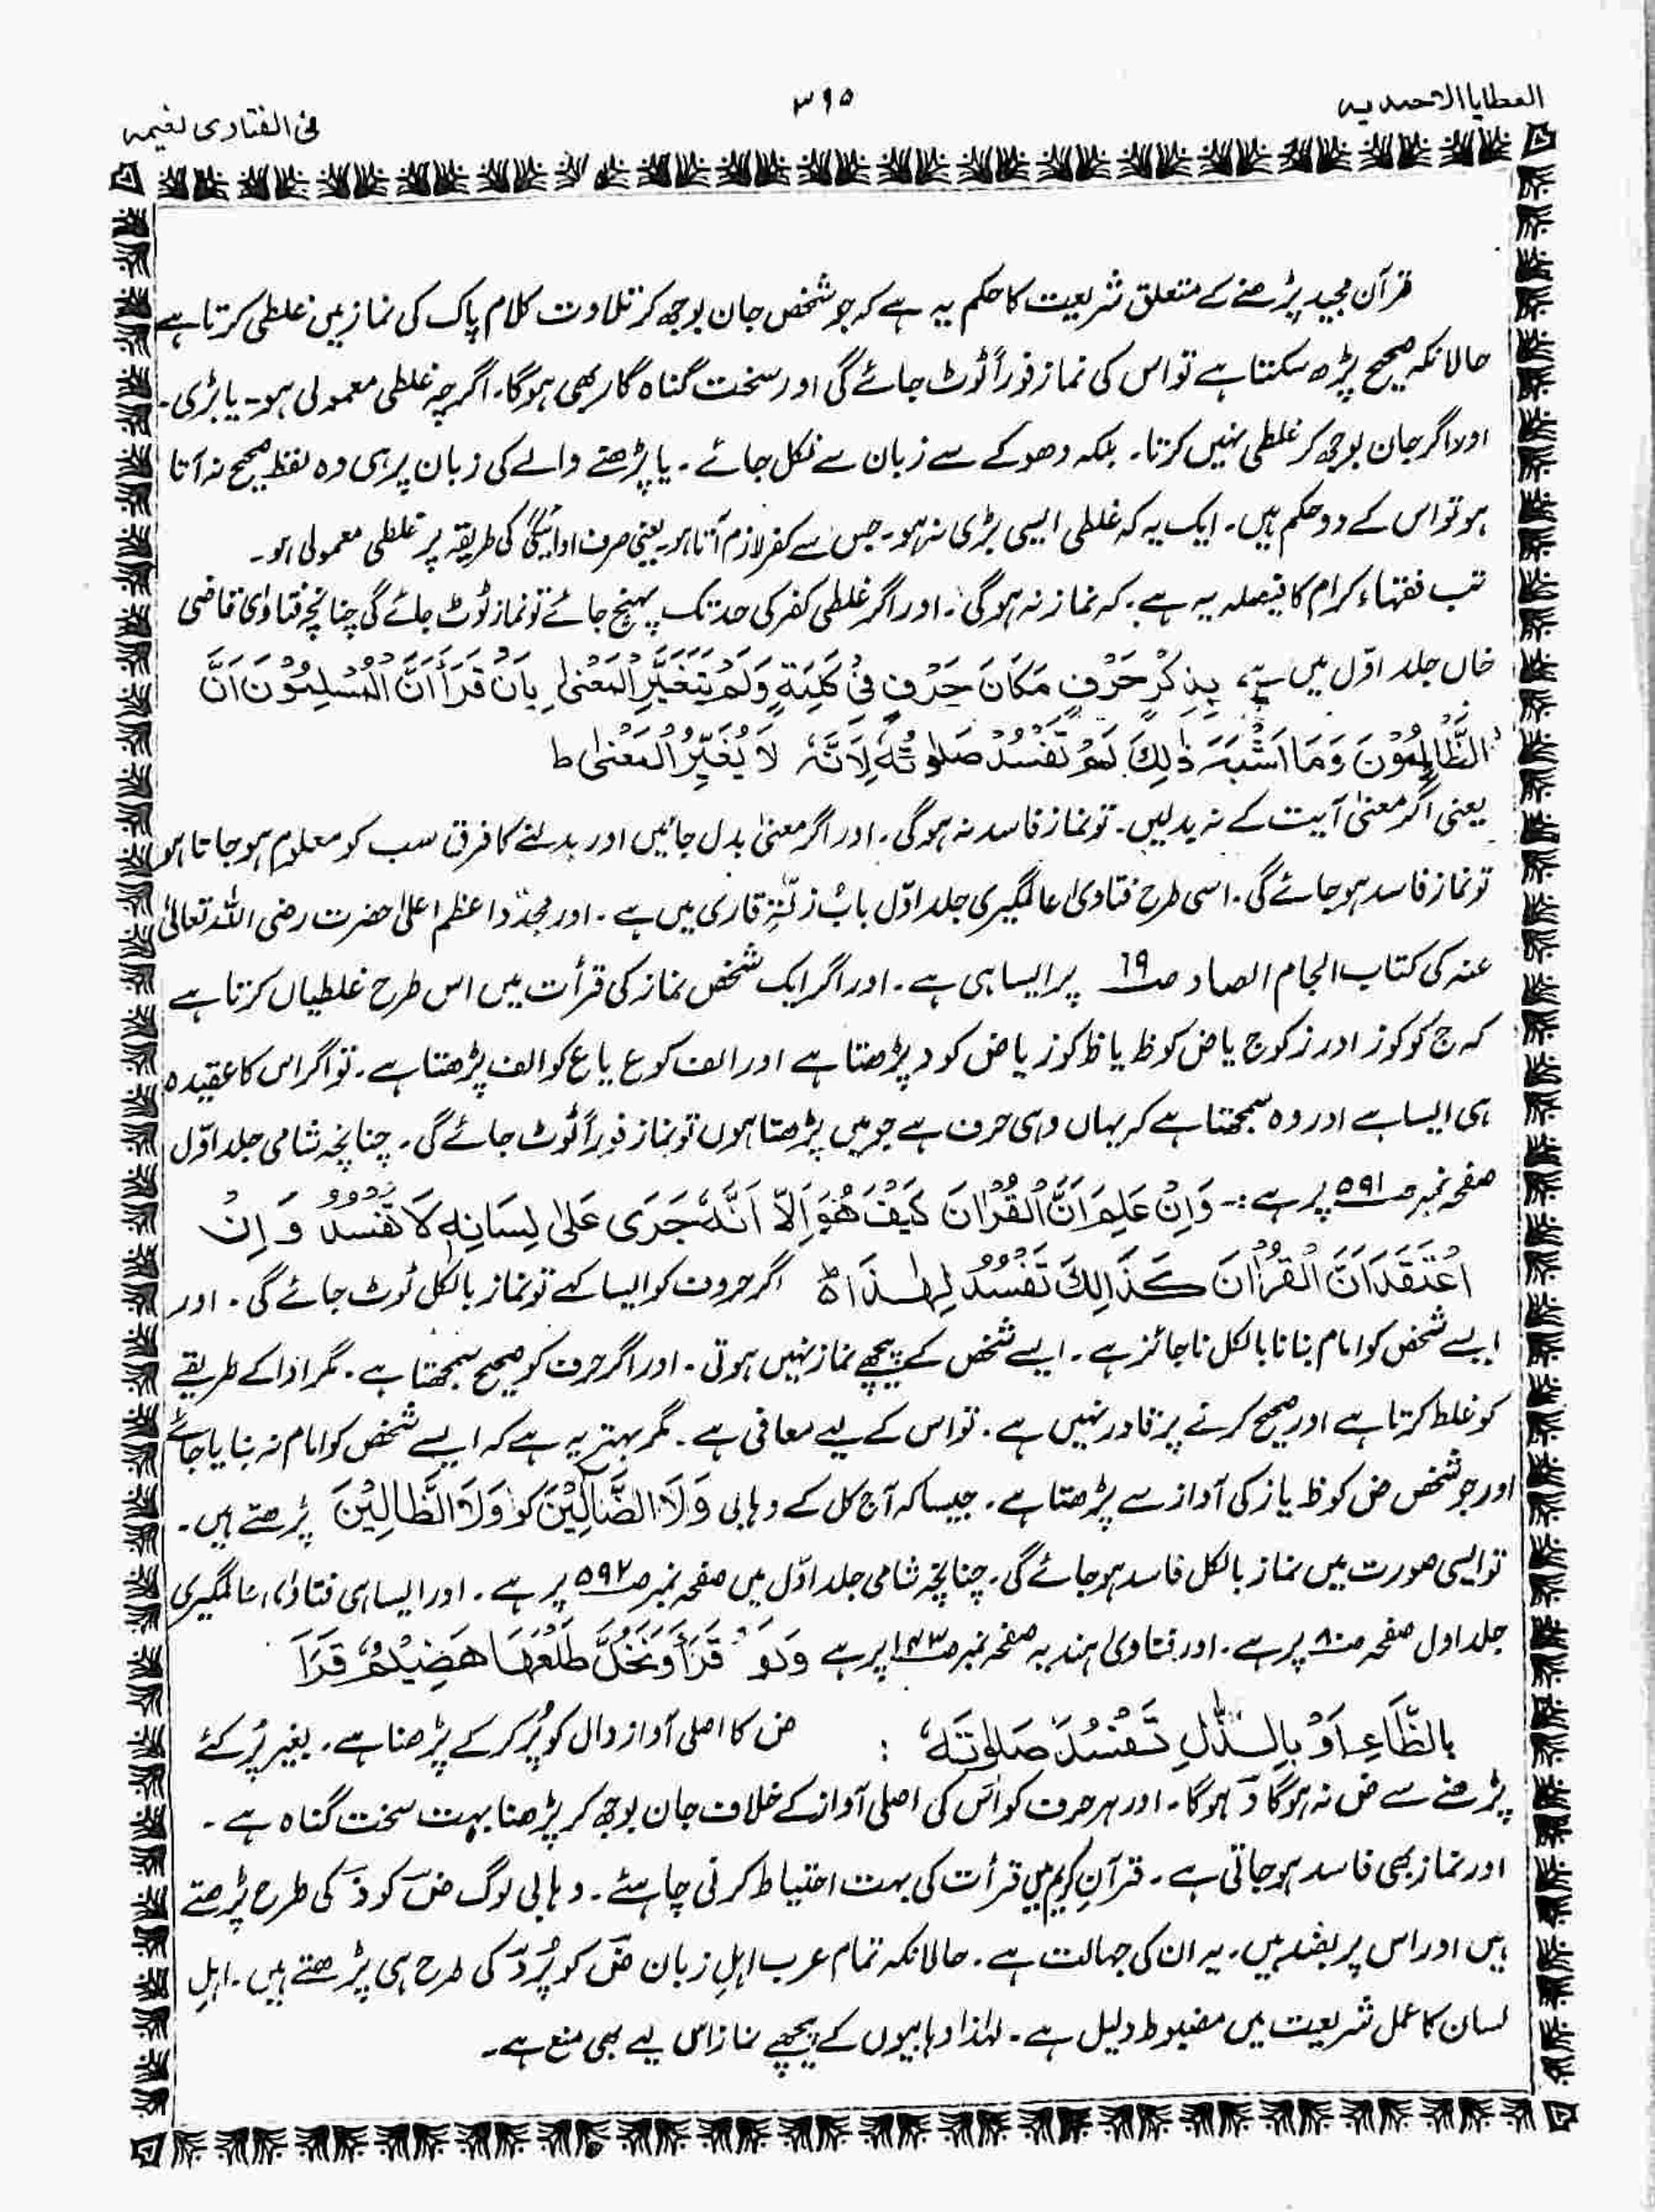 العطایا الاحمدیہ
۳۶۵
فی الفتاوی نعیمہ
قرآن مجید پڑھنے کے متعلق شریعت کا حکم یہ ہے کہ جو شخص جان بوجھ کر تلاوت کلام پاک کی نماز میں غلطی کرتا ہے
حالانکہ صحیح پڑھ سکتا ہے تو اس کی نماز فوراً ٹوٹ جائے گی اور سخت گناہ گار بھی ہوگا۔ اگرچہ غلطی معمولی ہو۔ یا بڑی۔
اور اگر جان بوجھ کر غلطی نہیں کرتا۔ بلکہ دھوکے سے زبان سے نکل جائے۔ یا پڑھنے والے کی زبان پر ہی وہ لفظ صحیح نہ آتا
ہو تو اس کے دو حکم ہیں۔ ایک یہ کہ غلطی ایسی بڑی نہ ہو۔ جس سے کفر لازم آتا ہو۔ یعنی صرف ادائیگی کی طریقہ پر غلطی معمولی ہو۔
تب فقہاء کرام کا فیصلہ یہ ہے۔ کہ نماز نہ ہوگی۔ اور اگر غلطی کفر کی حد تک پہنچ جائے تو نماز ٹوٹ جائے گی چنانچہ فتاوٰی قاضی
خاں جلد اوّل میں ہے، بِذِکْرِ حَرْفٍ مَکَانَ حَرْفٍ فِیْ کَلِمَۃٍ وَلَمْ یَتَغَیَّرِ الْمَعْنٰی بِاَنْ قَرَأَ اَنَّ الْمُسْلِمُوْنَ اَنَّ
الظَّالِمُوْنَ وَمَا اَشْبَہَ ذٰلِکَ لَمْ تَفْسُدْ صَلٰوتُہٗ لِاَنَّہٗ لَا یُغَیِّرُ الْمَعْنٰی ط
یعنی اگر معنیٰ آیت کے نہ بدلیں۔ تو نماز فاسد نہ ہوگی۔ اور اگر معنیٰ بدل جائیں اور بدلنے کا فرق سب کو معلوم ہو جاتا ہو
تو نماز فاسد ہو جائے گی۔ اسی طرح فتاویٰ عالمگیری جلد اوّل بابُ زلّتہِ قاری میں ہے۔ اور مجدّد اعظم اعلیٰ حضرت رضی اللہ تعالیٰ
عنہ کی کتاب الجام الصاد صـ ۶۹ پر ایسا ہی ہے۔ اور اگر ایک شخص نماز کی قرأت میں اس طرح غلطیاں کرتا ہے
کہ ج کو کوز اور ز کو ج یا ض کو ظ یا ظ کو ز یا ض کو د پڑھتا ہے اور الف کو ع یا ع کو الف پڑھتا ہے۔ تو اگر اس کا عقیدہ
ہی ایسا ہے اور وہ سمجھتا ہے کہ یہاں وہی حرف ہے جو میں پڑھتا ہوں تو نماز فوراً ٹوٹ جائے گی۔ چنانچہ شامی جلد اوّل
صفحہ نمبر صـ ۵۹۱ پر ہے :۔ وَاِنْ عَلِمَ اَنَّ الْقُرْاٰنَ کَیْفَ ھُوَ اِلَّا اَنَّہٗ جَرٰی عَلٰی لِسَانِہٖ لَا تَفْسُدُ وَ اِنْ
اعْتَقَدَ اَنَّ الْقُرْاٰنَ کَذَالِکَ تَفْسُدُ لِہٰذَا ہ اگر حروف کو ایسا کہے تو نماز بالکل ٹوٹ جائے گی۔ اور
ایسے شخص کو امام بنانا بالکل ناجائز ہے۔ ایسے شخص کے پیچھے نماز نہیں ہوتی۔ اور اگر حرف کو صحیح سمجھتا ہے۔ مگر ادا کے طریقے
کو غلط کرتا ہے اور صحیح کرنے پر قادر نہیں ہے۔ تو اس کے لیے معافی ہے۔ مگر بہتر یہ ہے کہ ایسے شخص کو امام نہ بنایا جائے
اور جو شخص ض کو ظ یا ز کی آواز سے پڑھتا ہے۔ جیسا کہ آج کل کے وہابی وَلَا الضَّآلِّیْنَ کو وَلَا الظَّالِیْنَ پڑھتے ہیں۔
تو ایسی صورت میں نماز بالکل فاسد ہو جائے گی۔ چنانچہ شامی جلد اوّل میں صفحہ نمبر صـ ۵۹۲ پر ہے۔ اور ایسا ہی فتاویٰ عالمگیری
جلد اول صفحہ صـ ۸۰ پر ہے۔ اور فتاویٰ ہندیہ صفحہ نمبر صـ ۱۴۳ پر ہے وَلَوْ قَرَأَ وَنَخْلٍ طَلْعُہَا ھَضِیْمٌ قَرَأَ
بِالظَّاءِ اَوْ بِالدَّالِ تَفْسُدُ صَلٰوتَہٗ : ض کا اصلی آواز دال کو پُر کرکے پڑھنا ہے۔ بغیر پُر کئے
پڑھنے سے ض نہ ہوگا دَ ہوگا۔ اور ہر حرف کو اس کی اصلی آواز کے خلاف جان بوجھ کر پڑھنا بہت سخت گناہ ہے۔
اور نماز بھی فاسد ہو جاتی ہے۔ قرآنِ کریم میں قرأت کی بہت احتیاط کرنی چاہئے۔ وہابی لوگ ضَ کو ذَ کی طرح پڑھتے
ہیں اور اس پر بضد ہیں۔ یہ ان کی جہالت ہے۔ حالانکہ تمام عرب اہلِ زبان ضَ کو پُر دَ کی طرح ہی پڑھتے ہیں۔ اہلِ
لسان کا عمل شریعت میں مضبوط دلیل ہے۔ لہٰذا وہابیوں کے پیچھے نماز اس لیے بھی منع ہے۔